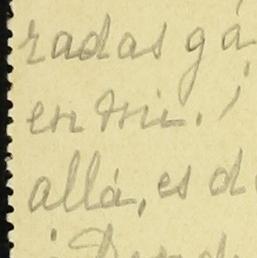 radas gá
en mi. ¡
allá, es d